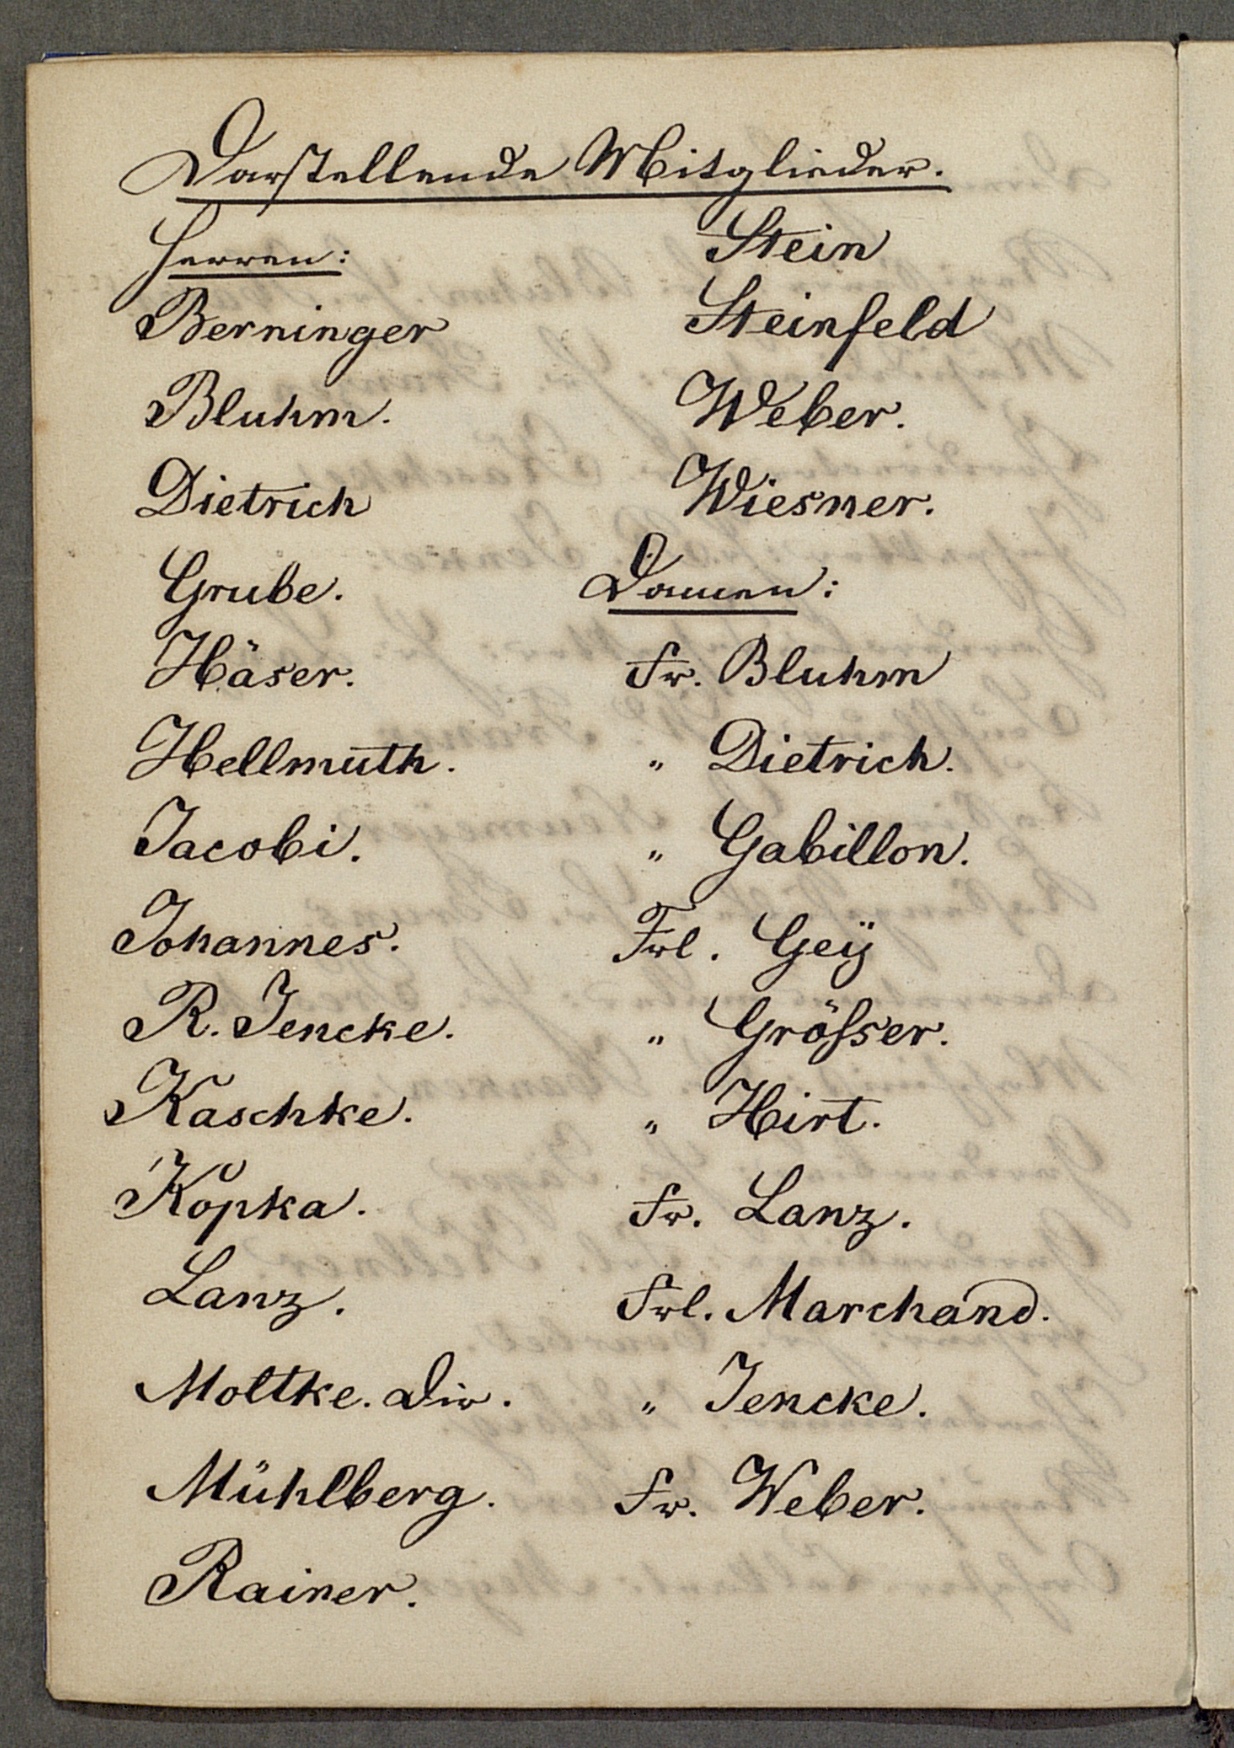 Darstellende Mitglieder.
Herren:
Berninger
Bluhm.
Dietrich
Grube.
Häser.
Hellmuth.
Jacobi.
Johannes.
R. Jencke.
Kaschke.
Kopka.
Lanz.
Moltke. Dir.
Mühlberg.
Rainer.
Stein
Steinfeld
Weber.
Wiesner.
Damen:
Fr. Bluhm
" Dietrich.
" Gabillon.
Frl. Geÿ
" Größer.
" Hirt.
Fr. Lanz.
Frl. Marchand.
" Jencke.
Fr. Weber.